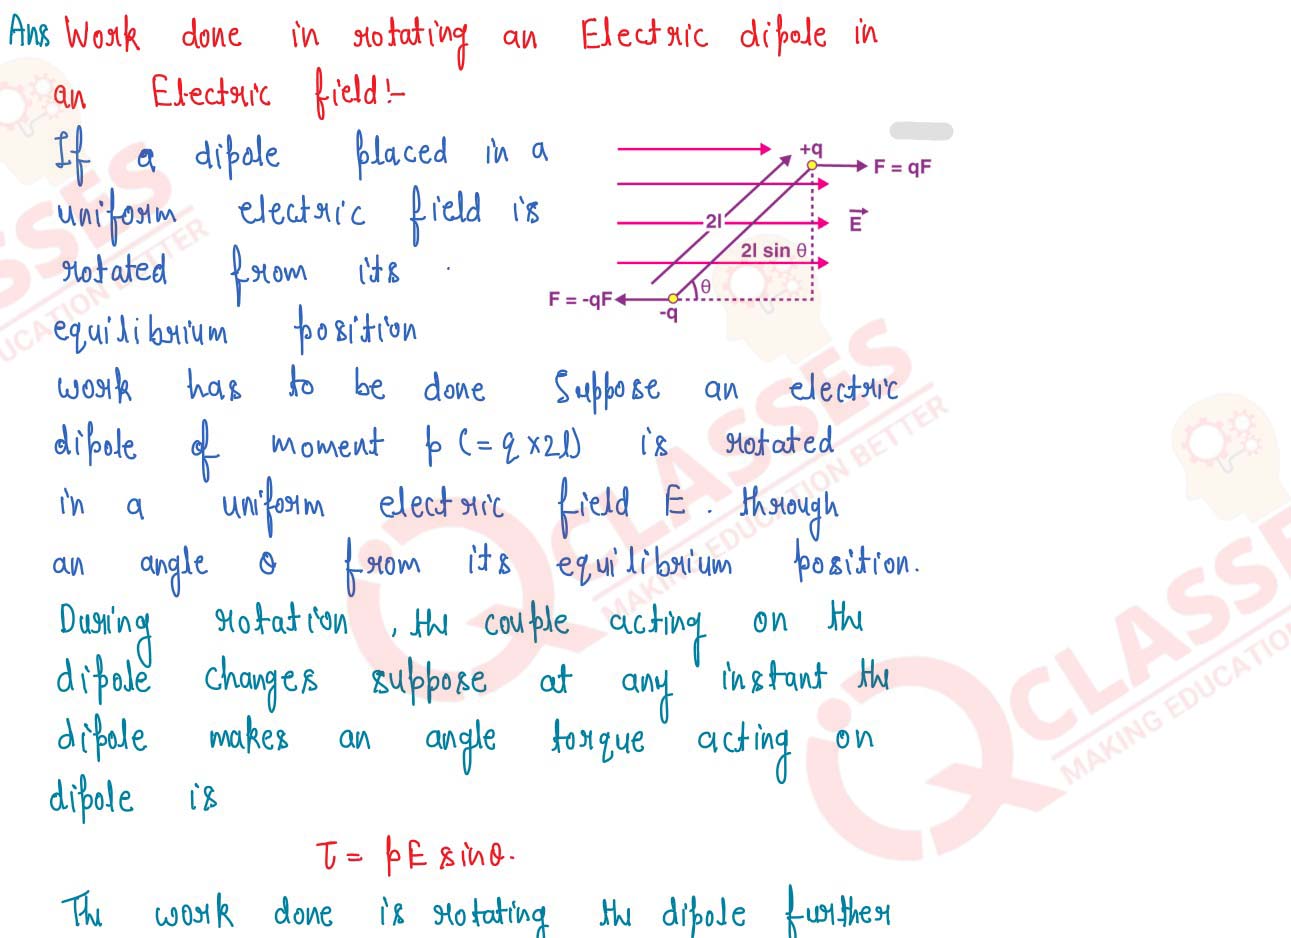 Ans Work done in rotating an Electric dipole in
an Electric field:-
If a dipole placed in a
uniform electric field is
rotated from its
equilibrium position
work has to be done Suppose an electric
dipole of moment p (= q x 2l) is rotated
in a uniform electric field E. through
an angle θ from its equilibrium position.
During rotation, the couple acting on the
dipole changes suppose at any instant the
dipole makes an angle torque acting on
dipole is
τ = pE sinθ.
The work done is rotating the dipole further
+q
F = qF
2l
E
2l sin θ
θ
F = -qF
-q
CLASSES
MAKING EDUCATION BETTER
CLASSES
MAKING EDUCATION
SSES
UCATION BETTER